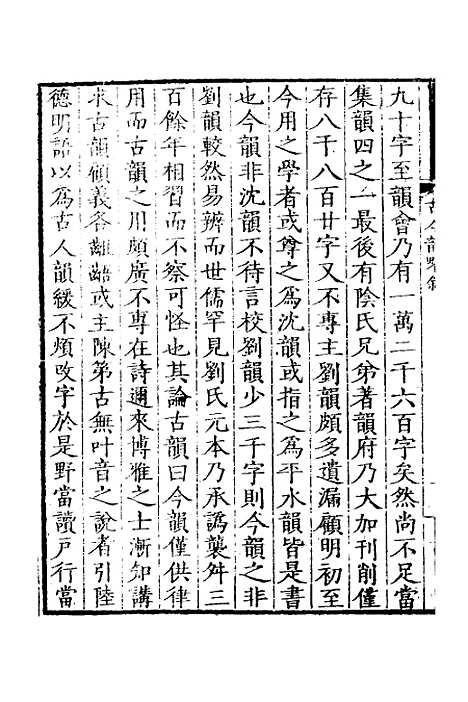 九十字至韻會乃有一萬二千六百字矣然尚不足當
集韻四之一最後有陰氏兄弟著韻府乃大加刊削僅
存八千八百廿字又不專主劉韻頗多遺漏顧明初至
今用之學者或尊之爲沈韻或指之爲平水韻皆是書
也今韻非沈韻不待言校劉韻少三千字則今韻之非
劉韻較然易辨而世儒罕見劉氏元本乃承譌襲舛三
百餘年相習而不察可怪也其論古韻曰今韻僅供律
用而古韻之用頗廣不專在詩邇來博雅之士漸知講
求古韻顧義各齟齬或主陳第古無叶音之說者引陸
德明語以爲古人韻緩不煩改字於是野當讀戸行當